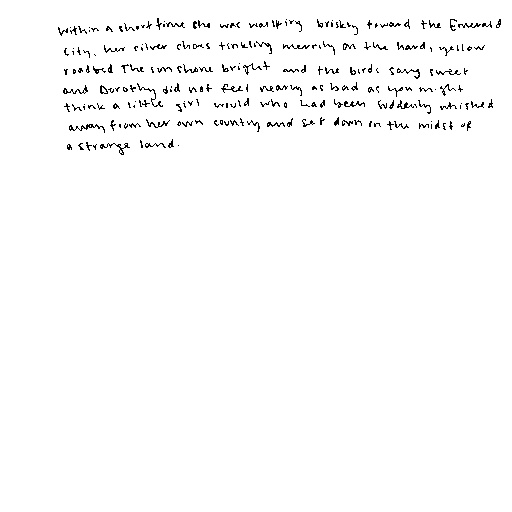 Within a short time she was walking briskly toward the Emerald
City, her silver shoes tinkling merrily on the hard, yellow
roadbed The sun shone bright and the birds sang sweet
and Dorothy did not feel nearly as bad as you might
think a little girl would who had been suddenly whisked
away from her own country and set down in the midst of
a strange land.